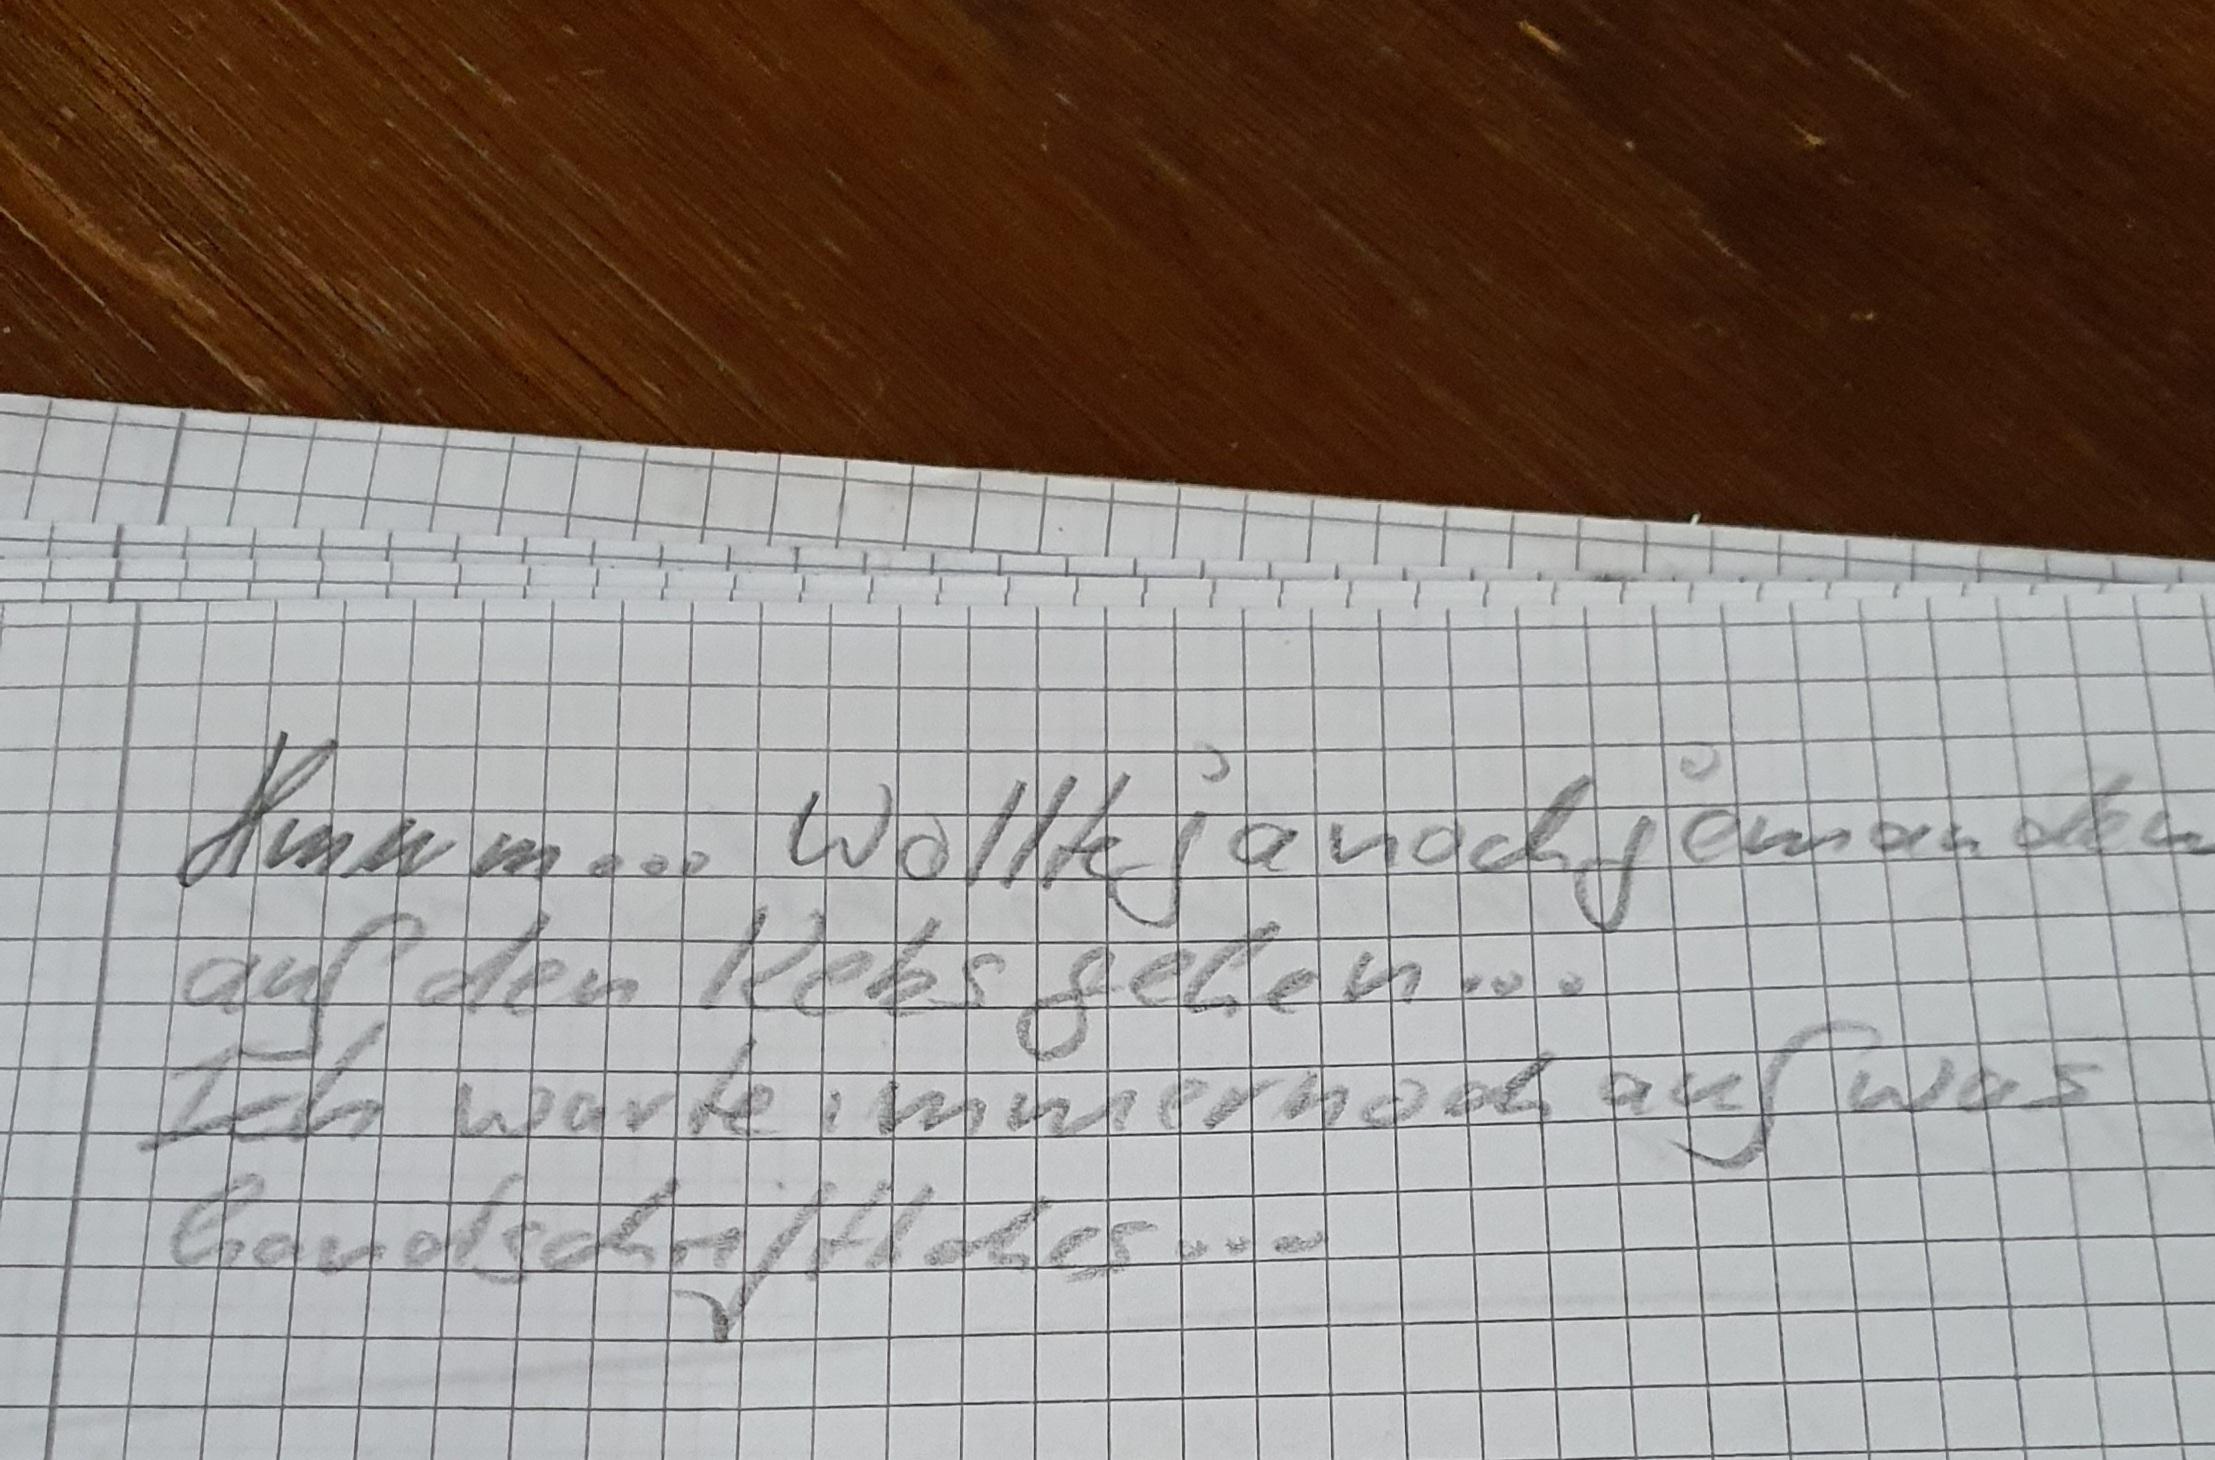 Hmmm... Wollte ja noch jemanden
auf den Kebs gehen...
Ich warte immernoch auf was
handschriftliches...